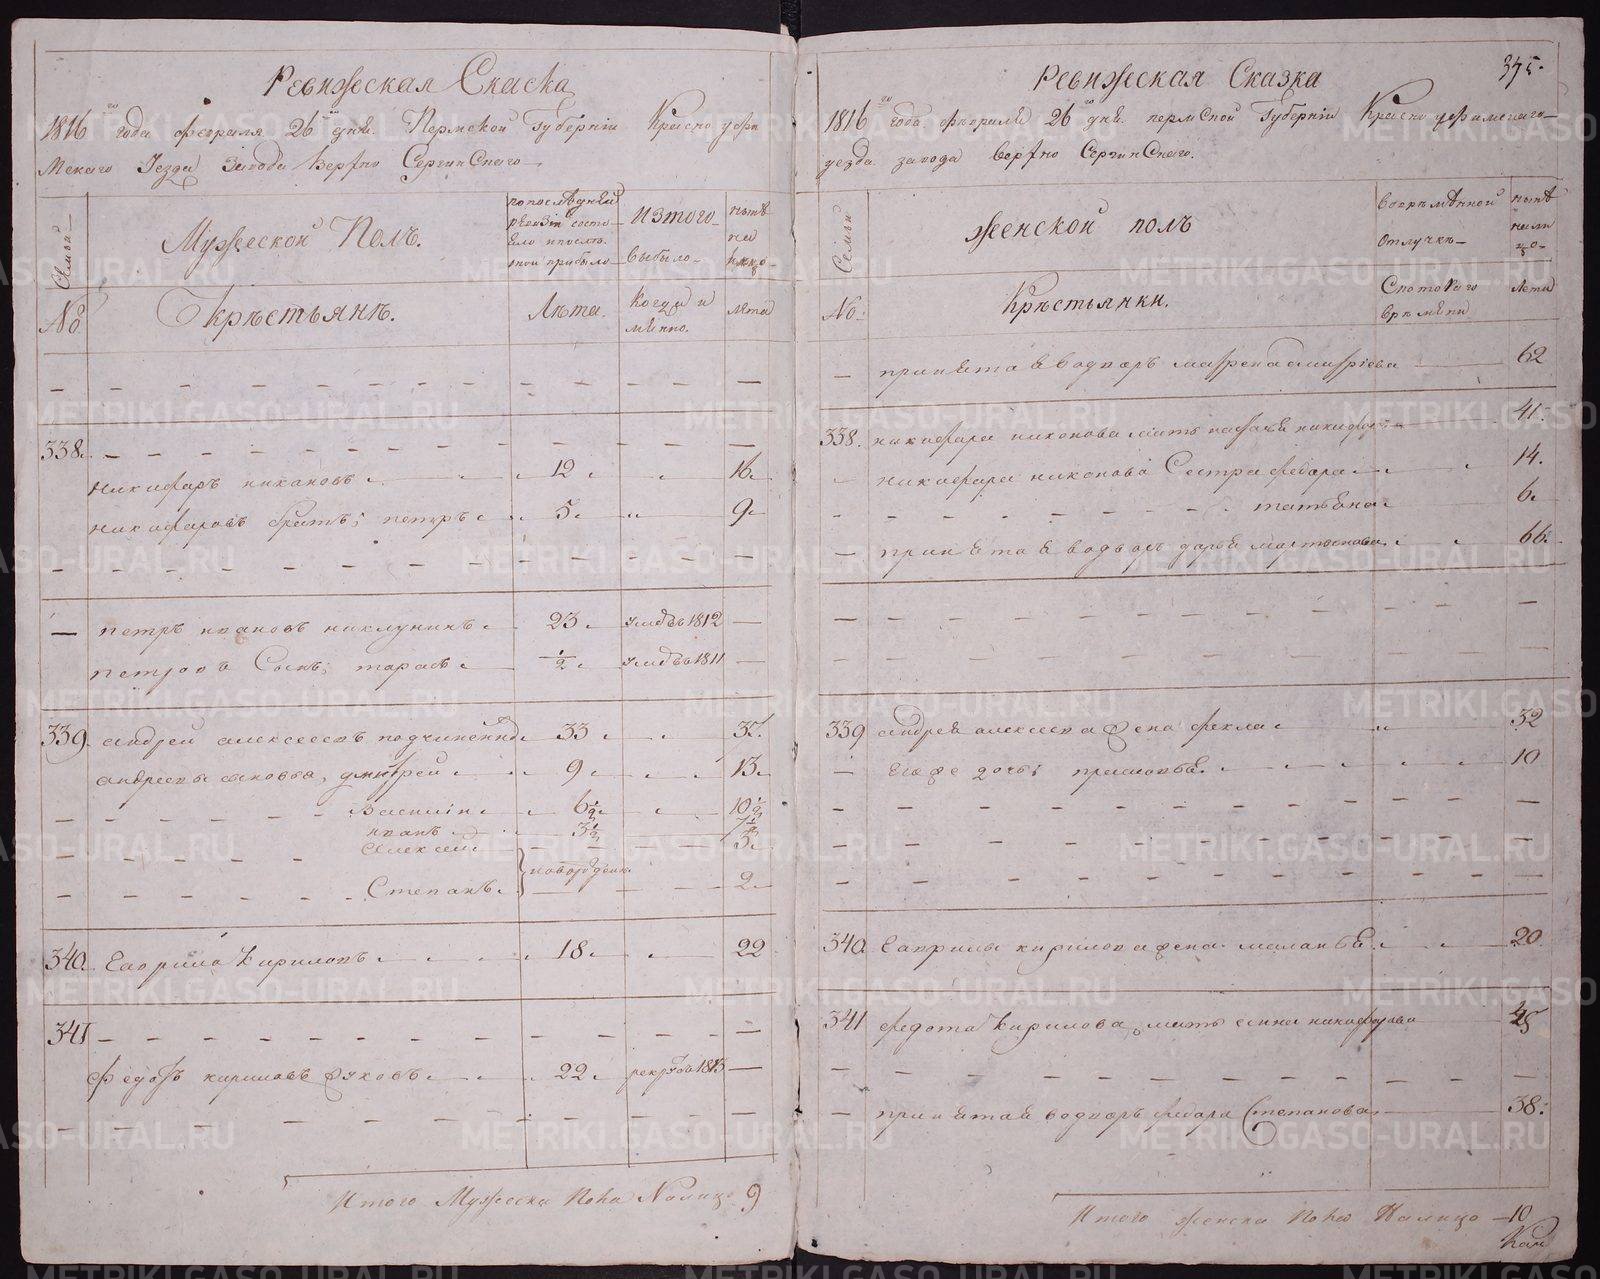 Ревижская Скаска
1816 го года февраля 26 го дня. Пермской Губернiи Красно уфи
мскаго Уезда Завода Верхно Сергинскаго
Семьи
Мужеской Полъ.
по последней ревизiи состо
яло и после
оной прибыло
Изтого
выбыло
ныне
на
лицо
№
Крестьяне.
Лета.
Когда и
менно.
Лета
338.
Никифаръ никоновъ 12 16.
Никифаровъ братъ; петръ 5 9
петръ ивановъ 23 умръ 1812
петровъ Сынъ; тарасъ 1/2 умръ 1811
339. андрей алексеевъ 33 37.
андреевы сыновья, дмитрей 9 13
Василiи 6 1/2 10 1/2
иванъ 3 1/2 7 1/2
алексей 3
новорожден.
Степанъ 2
340. Гаврила Кириловъ 18 22
341
Федотъ кириловъ 22 рекрутъ 1813
Итого Мужеска Пола Налицо 9
375.
Ревижская Сказка
1816 го года февраля 26 го дня. пермской Губернiи Красно уфимскаго
уезда завода верхно Сергинскаго.
Семьи
женской полъ
Вовременной
отлучке
ныне
нали
цо
№
Крестьянки.
Скотораго
времени
Лета
принята в водворъ матрена 62
338. никифара никонова мать никифорова 41.
никифара никонова Сестра федора 14.
татьяна 6
принята в водворъ дарья мартынова 66.
339 андрея алексеева жена фекла 32
Егоже дочь; прасковья 10
340. Гаврилы кирилова жена маланья 20
341 федота Кирилова мать анна никифорова 45
принятая водворъ федора Степанова 38.
Итого женска Пола Налицо 10